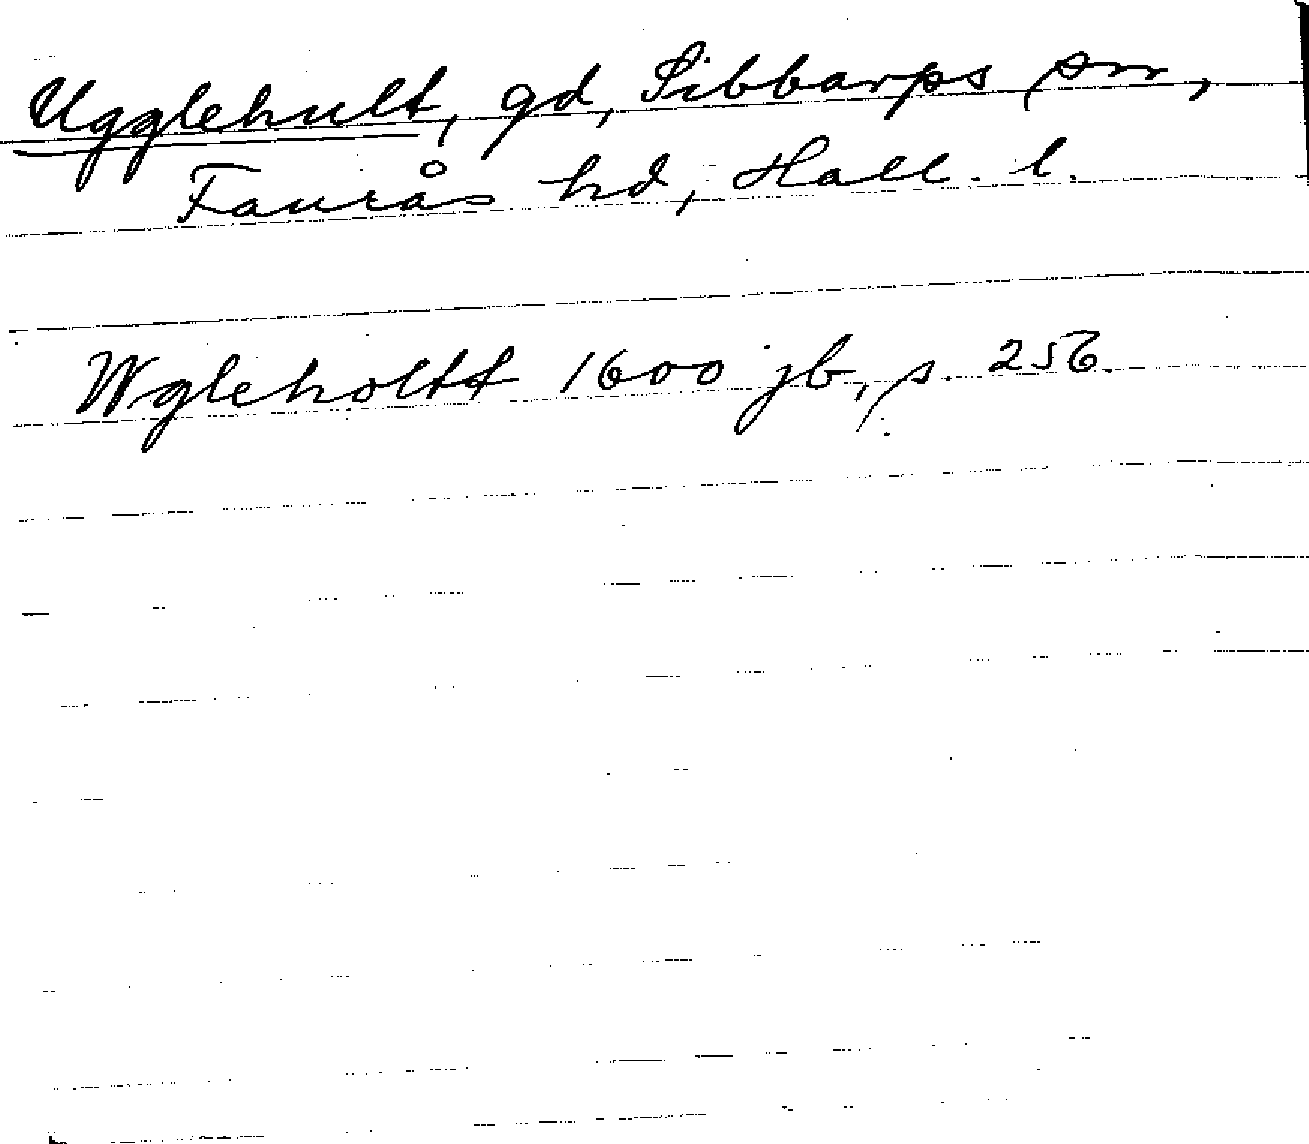 Ugglehult, gd, Sibbarps sn,
Faurås hd, Hall. l.
Wgleholtt 1600 jb, s. 256.